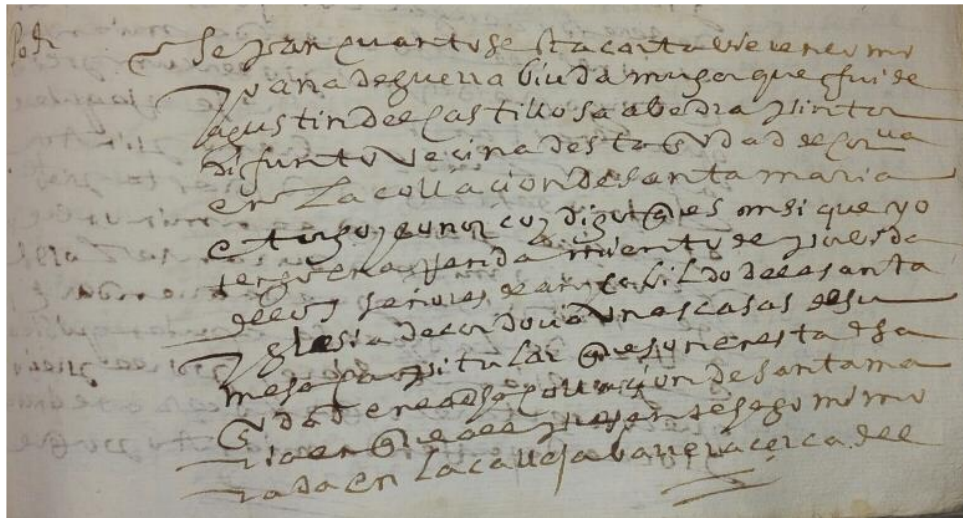 Poder
Sepan quantos esta carta vieren como
Juana de guerra biuda muger que fui de
agustin del castillo saabedra pintor
difunto vecina desta ciudad de cordoua
en la collacion de santa maria
otorgo y conozco y digo que es ansi que yo
tengo en arrendamiento de por vida
de los señores dean y cabildo de la santa
yglesia de cordoua unas casas de su
mesa capitular que son en esta dha
ciudad en la dha collacion de santa ma
ria en que al presente hago mi mo
rada en la calleja barrera cerca del